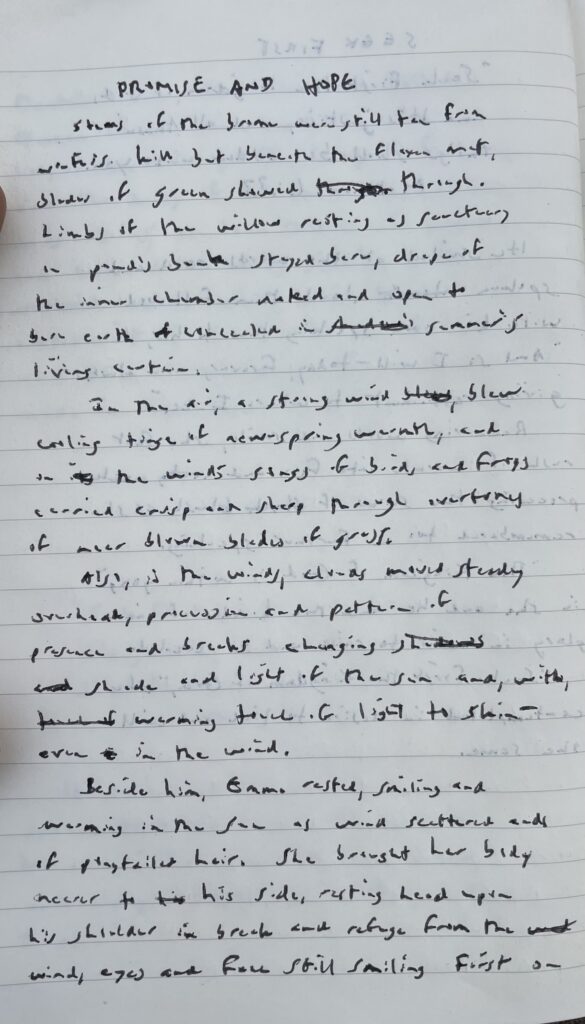 PROMISE AND HOPE
Stems of the brome were still tan from
winter's kill but beneath the flaxen mat,
blades of green showed through.
Limbs of the willow resting as sanctuary
in pond's bank stayed bare, drape of
the inner chamber naked and open to
bare earth concealed in summer's
living curtain.
In the air, a strong wind blew
cooling tinge of new-spring warmth, and
in the wind's songs of birds and frogs
carried crisp and sharp through overtones
of near blown blades of grass.
Also, in the winds, clouds moved steady
overhead, procession and pattern of
presence and breaks changing
shade and light of the sun and, with,
warming touch of light to skin—
even in the wind.
Beside him, Emma rested, smiling and
warming in the sun as wind scattered ends
of ponytailed hair. She brought her body
nearer to his side, resting head upon
his sholder in break and refuge from the
wind, eyes and face still smiling first on